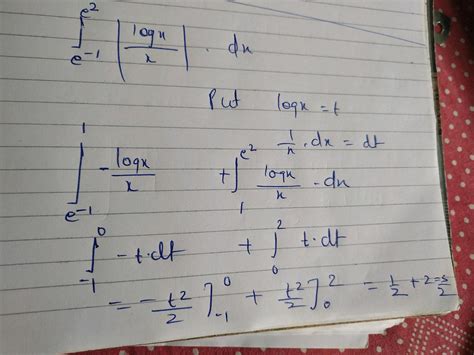 ∫_{e^{-1}}^{e^2} |logx/x| . dx
Put logx = t
1/x . dx = dt
∫_{e^{-1}}^{1} -logx/x + ∫_{1}^{e^2} logx/x . dx
∫_{-1}^{0} -t.dt + ∫_{0}^{2} t.dt
= -t²/2 ]_{-1}^{0} + t²/2 ]_{0}^{2} = 1/2 + 2 = 5/2